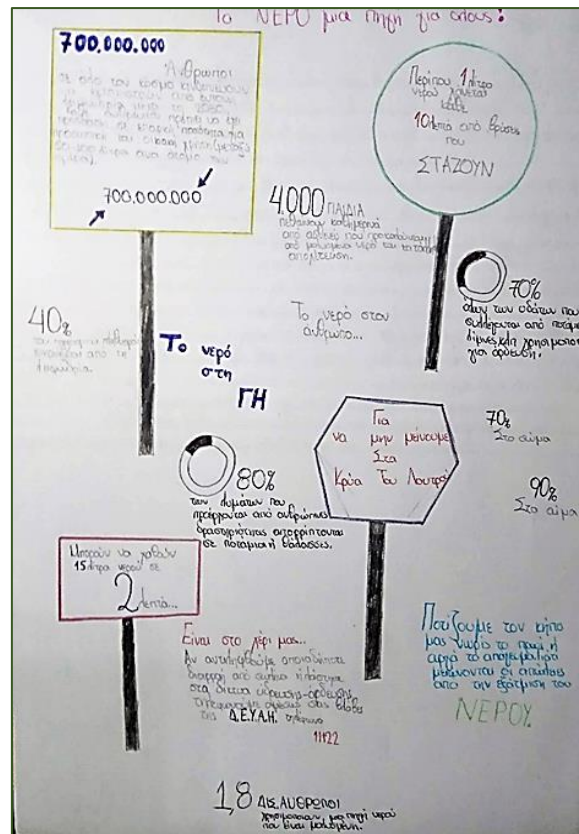 Το ΝΕΡΟ μια πηγή για όλους!
700.000.000
Άνθρωποι
σε όλο τον κόσμο κινδυνεύουν
να από
μετά το 2030
Κάθε άνθρωπος πρέπει να έχει
πρόσβαση σε
και οικιακή χρήση
ανά άτομο την
700.000.000
Περίπου 1 λίτρο
νερού χάνεται
κάθε
10 λεπτά από βρύσες
που
ΣΤΑΖΟΥΝ
4.000 ΠΑΙΔΙΑ
πεθαίνουν καθημερινά
από ασθένειες που προκαλούνται
από μολυσμένο νερό
αποχέτευση.
70%
όλων των υδάτων που
συλλέγονται από ποτάμια
λίμνες κλπ χρησιμοποι
για άρδευση.
Το νερό στον
άνθρωπο...
40%
του πληθυσμού
από τη
λειψυδρία.
Το νερό
στη
ΓΗ
Για
να μην μένουμε
Στα
Κρύα Του Λουτρού
70%
Στο σώμα
90%
Στο αίμα
80%
των λυμάτων που
προέρχονται από ανθρώπινες
δραστηριότητες απορρίπτονται
σε ποτάμια ή θάλασσες.
Μπορούν να χαθούν
15 λίτρα νερού σε
2 λεπτά...
Είναι στο χέρι μας...
Αν αντιληφθούμε οποιαδήποτε
διαρροή από σωλήνα ή λάστιχο
στα δίκτυα ύδρευσης-άρδευσης,
τηλεφωνούμε αμέσως στις βλάβες
της Δ.Ε.Υ.Α.Η. τηλέφωνο
Ποτίζουμε τον κήπο
μας νωρίς το πρωί ή
αργά το απόγευμα γιατί
μειώνονται οι απώλειες
από την εξάτμιση του
ΝΕΡΟΥ.
1,8 ΔΙΣ. ΑΝΘΡΩΠΟΙ
χρησιμοποιούν μια πηγή νερού
που είναι μολυσμένη.